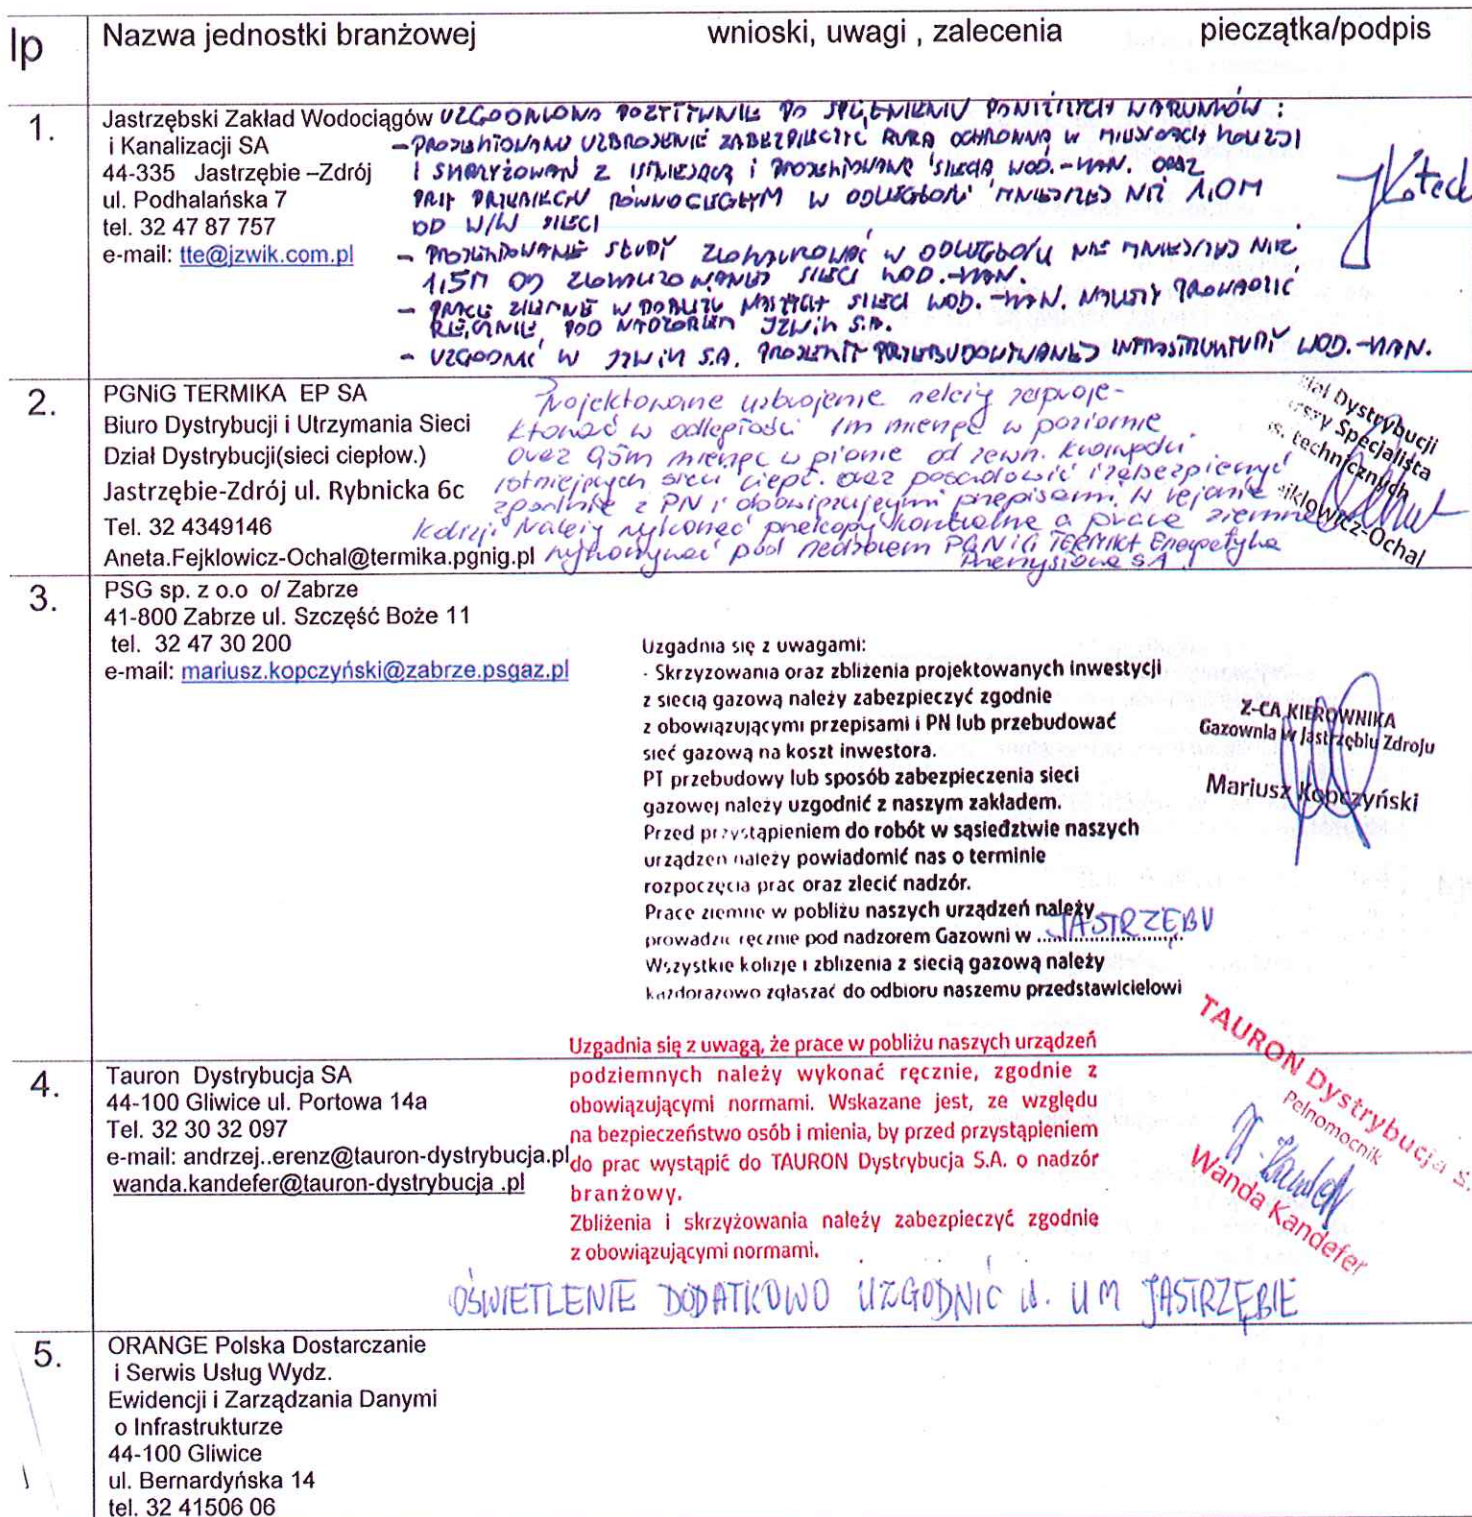 lp Nazwa jednostki branżowej wnioski, uwagi , zalecenia pieczątka/podpis
1. Jastrzębski Zakład Wodociągów
i Kanalizacji SA
44-335 Jastrzębie –Zdrój
ul. Podhalańska 7
tel. 32 47 87 757
e-mail: tte@jzwik.com.pl
UZGODNIONO POZYTYWNIE PO SPEŁNIENIU PONIŻSZYCH WARUNKÓW :
- PROJEKTOWANE UZBROJENIE ZABEZPIECZYĆ RURĄ OCHRONNĄ W MIEJSCACH KOLIZJI
I SKRZYŻOWAŃ Z ISTNIEJĄCĄ I PROJEKTOWANĄ SIECIĄ WOD.-KAN. ORAZ
PRZY PRZEBIEGU RÓWNOLEGŁYM W ODLEGŁOŚCI MNIEJSZEJ NIŻ 1,0M
OD W/W SIECI
- PROJEKTOWANE SŁUPY ZLOKALIZOWAĆ W ODLEGŁOŚCI NIE MNIEJSZEJ NIŻ
1,5M OD ZLOKALIZOWANEJ SIECI WOD.-KAN.
- PRACE ZIEMNE W POBLIŻU NASZYCH SIECI WOD.-KAN. NALEŻY PROWADZIĆ
RĘCZNIE POD NADZOREM JZWiK S.A.
- UZGODNIĆ W JZWiK S.A. PROJEKTY PRZEBUDOWYWANEJ INFRASTRUKTURY WOD.-KAN.
2. PGNiG TERMIKA EP SA
Biuro Dystrybucji i Utrzymania Sieci
Dział Dystrybucji(sieci ciepłow.)
Jastrzębie-Zdrój ul. Rybnicka 6c
Tel. 32 4349146
Aneta.Fejklowicz-Ochal@termika.pgnig.pl
Projektowane uzbrojenie należy zaproje-
ktować w odległości 1m mierząc w poziomie
oraz 0,5m mierząc w pionie od zewn. krawędzi
istniejących sieci ciepł. oraz posadowić i zabezpieczyć
zgodnie z PN i obowiązującymi przepisami. W rejonie
kolizji należy wykonać przekopy kontrolne a prace ziemne
wykonywać pod nadzorem PGNiG TERMIKA Energetyka
Przemysłowa SA
Dział Dystrybucji
Specjalista
technicznych
Ochal
3. PSG sp. z o.o o/ Zabrze
41-800 Zabrze ul. Szczęść Boże 11
tel. 32 47 30 200
e-mail: mariusz.kopczyński@zabrze.psgaz.pl
Uzgadnia się z uwagami:
- Skrzyzowania oraz zbliżenia projektowanych inwestycji
z siecią gazową należy zabezpieczyć zgodnie
z obowiązującymi przepisami i PN lub przebudować
sieć gazową na koszt inwestora.
PT przebudowy lub sposób zabezpieczenia sieci
gazowej należy uzgodnić z naszym zakładem.
Przed przystąpieniem do robót w sąsiedztwie naszych
urządzeń należy powiadomić nas o terminie
rozpoczęcia prac oraz zlecić nadzór.
Prace ziemne w pobliżu naszych urządzeń należy
prowadzić ręcznie pod nadzorem Gazowni w JASTRZĘBIU
Wszystkie kolizje i zblizenia z siecią gazową należy
każdorazowo zgłaszać do odbioru naszemu przedstawicielowi
Z-CA KIEROWNIKA
Gazownia w Jastrzębiu Zdroju
Mariusz Kopczyński
4. Tauron Dystrybucja SA
44-100 Gliwice ul. Portowa 14a
Tel. 32 30 32 097
e-mail: andrzej..erenz@tauron-dystrybucja.pl
wanda.kandefer@tauron-dystrybucja .pl
Uzgadnia się z uwagą, że prace w pobliżu naszych urządzeń
podziemnych należy wykonać ręcznie, zgodnie z
obowiązującymi normami. Wskazane jest, ze względu
na bezpieczeństwo osób i mienia, by przed przystąpieniem
do prac wystąpić do TAURON Dystrybucja S.A. o nadzór
branżowy.
Zbliżenia i skrzyżowania należy zabezpieczyć zgodnie
z obowiązującymi normami.
TAURON Dystrybucja S.
Pełnomocnik
Wanda Kandefer
OŚWIETLENIE DODATKOWO UZGODNIĆ W. UM JASTRZĘBIE
5. ORANGE Polska Dostarczanie
i Serwis Usług Wydz.
Ewidencji i Zarządzania Danymi
o Infrastrukturze
44-100 Gliwice
ul. Bernardyńska 14
tel. 32 41506 06